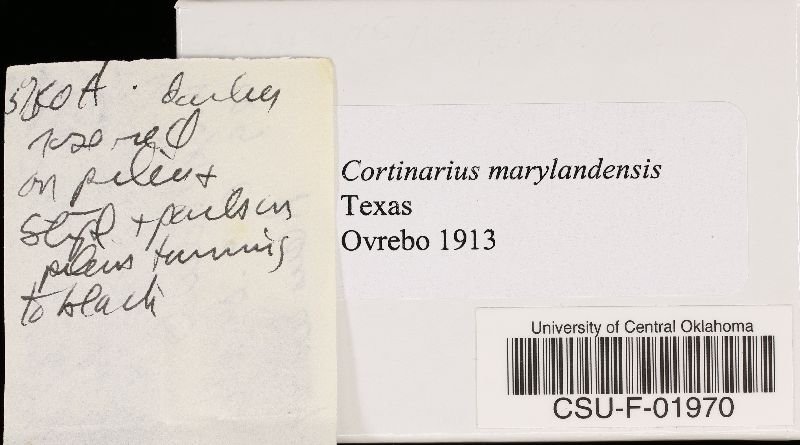 darker
rose-red
on pileus +
stipe + parts on
pileus turning
to black
Cortinarius marylandensis
Texas
Ovrebo 1913
University of Central Oklahoma
CSU-F-01970